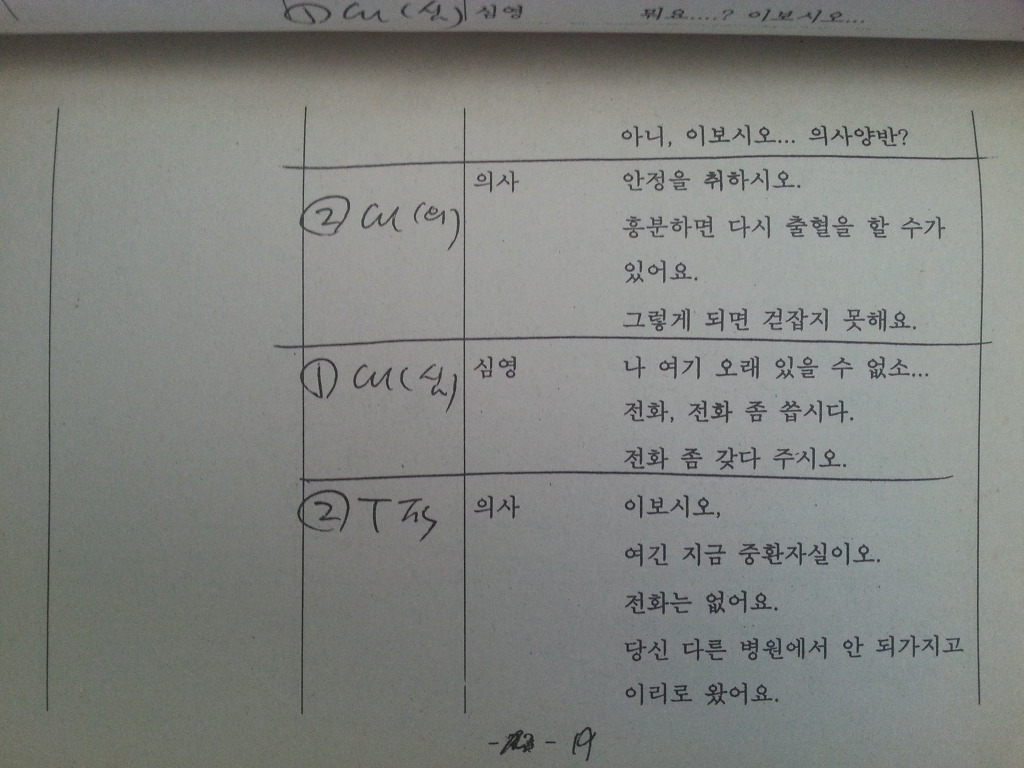 ① CU (심) 심영 뭐요....? 이보시오...
아니, 이보시오... 의사양반?
② CU (의) 의사 안정을 취하시오.
흥분하면 다시 출혈을 할 수가
있어요.
그렇게 되면 걷잡지 못해요.
① CU (심) 심영 나 여기 오래 있을 수 없소...
전화, 전화 좀 씁시다.
전화 좀 갖다 주시오.
② T 의사 이보시오,
여긴 지금 중환자실이오.
전화는 없어요.
당신 다른 병원에서 안 되가지고
이리로 왔어요.
- - 19